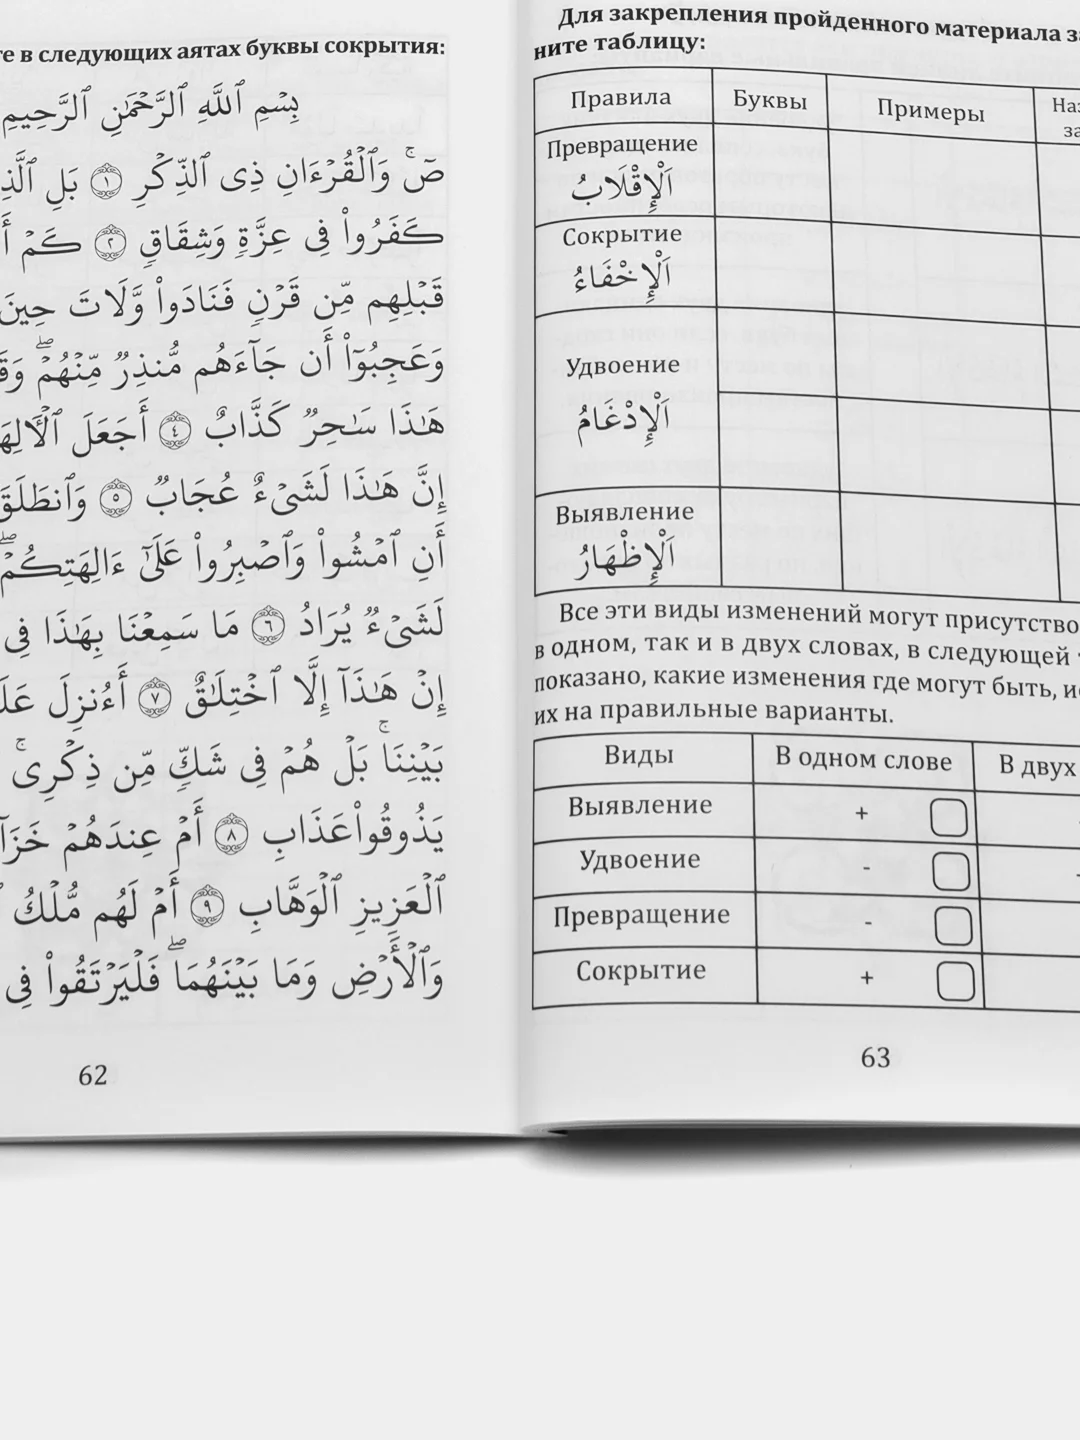 в следующих аятах буквы сокрытия:
بِسْمِ ٱللَّهِ ٱلرَّحْمَٰنِ ٱلرَّحِيمِ
صٓ ۚ وَٱلْقُرْءَانِ ذِى ٱلذِّكْرِ ١ بَلِ
كَفَرُوا۟ فِى عِزَّةٍ وَشِقَاقٍ ٢ كَمْ
قَبْلِهِم مِّن قَرْنٍ فَنَادَوا۟ وَّلَاتَ حِينَ
وَعَجِبُوٓا۟ أَن جَآءَهُم مُّنذِرٌ مِّنْهُمْ ۖ
هَٰذَا سَٰحِرٌ كَذَّابٌ ٤ أَجَعَلَ
إِنَّ هَٰذَا لَشَىْءٌ عُجَابٌ ٥ وَٱنطَلَقَ
أَنِ ٱمْشُوا۟ وَٱصْبِرُوا۟ عَلَىٰٓ ءَالِهَتِكُمْ ۖ
لَشَىْءٌ يُرَادُ ٦ مَا سَمِعْنَا بِهَٰذَا فِى
إِنْ هَٰذَآ إِلَّا ٱخْتِلَٰقٌ ٧ أَءُنزِلَ
بَيْنِنَا ۚ بَلْ هُمْ فِى شَكٍّ مِّن ذِكْرِى ۚ
يَذُوقُوا۟ عَذَابِ ٨ أَمْ عِندَهُمْ
ٱلْعَزِيزِ ٱلْوَهَّابِ ٩ أَمْ لَهُم مُّلْكُ
وَٱلْأَرْضِ وَمَا بَيْنَهُمَا ۖ فَلْيَرْتَقُوا۟ فِى
62
Для закрепления пройденного материала
ните таблицу:
Правила Буквы Примеры
Превращение
اَلْإِقْلَابُ
Сокрытие
اَلْإِخْفَاءُ
Удвоение
اَلْإِدْغَامُ
Выявление
اَلْإِظْهَارُ
Все эти виды изменений могут присутство
в одном, так и в двух словах, в следующей
показано, какие изменения где могут быть,
их на правильные варианты.
Виды В одном слове В двух
Выявление +
Удвоение -
Превращение -
Сокрытие +
63